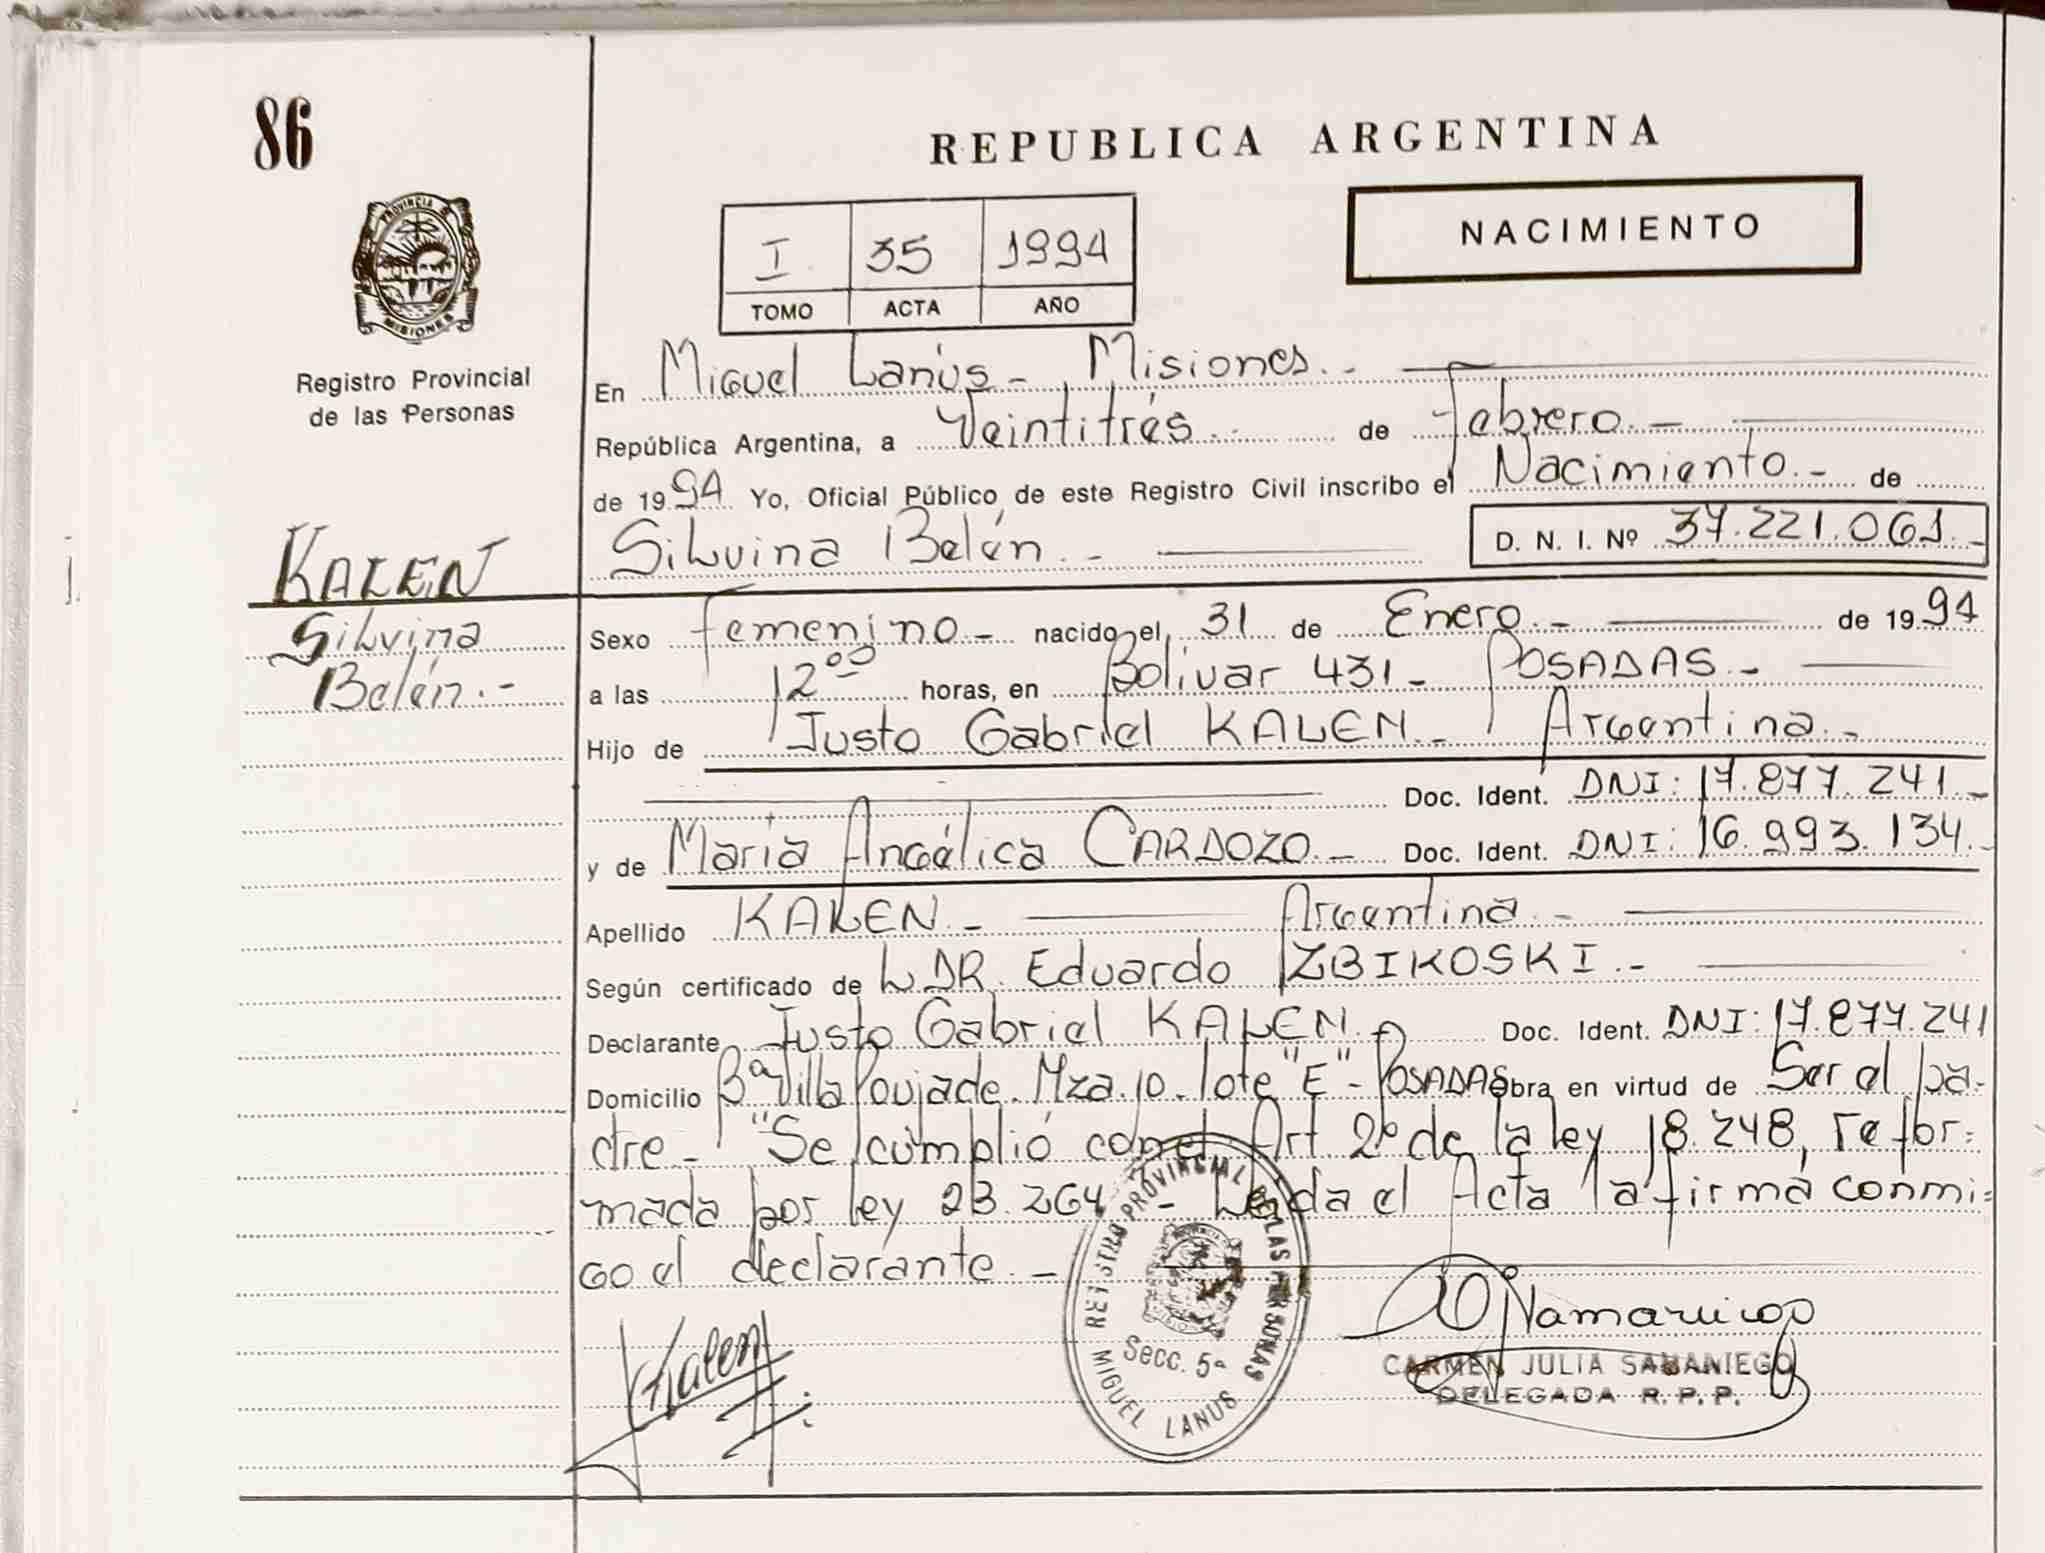 86
REPUBLICA ARGENTINA
NACIMIENTO
I 35 1994
TOMO ACTA AÑO
PROVINCIA DE
MISIONES
Registro Provincial
de las Personas
En Miguel Lanús - Misiones.-
República Argentina, a Veintitrés.- de febrero.-
de 1994 Yo, Oficial Público de este Registro Civil inscribo el Nacimiento.- de
Silvina Belén.- D. N. I. Nº 37.221.061.-
KALEN
Silvina
Belén.-
Sexo femenino.- nacido el 31 de Enero.- de 1994
a las 12⁰⁰ horas, en Bolivar 431 - POSADAS.-
Hijo de Justo Gabriel KALEN.- Argentina.-
Doc. Ident. DNI: 17.877.241.-
y de María Angélica CARDOZO.- Doc. Ident. DNI: 16.993.134.-
Apellido KALEN.- Argentina.-
Según certificado de DR. Eduardo ZBIKOSKI.-
Declarante Justo Gabriel KALEN.- Doc. Ident. DNI: 17.877.241
Domicilio Bº Villa Poujade. Mza. 10. lote "E" - POSADAS obra en virtud de Ser el pa-
dre - "Se cumplió con el Art 2º de la ley 18.248, refor-
mada por ley 23.264 - Leída el Acta la firma conmi-
go el declarante.-
Kalen
REGISTRO PROVINCIAL DE LAS PERSONAS
Secc. 5ª
MIGUEL LANUS
CARMEN JULIA SAMANIEGO
DELEGADA R. P. P.